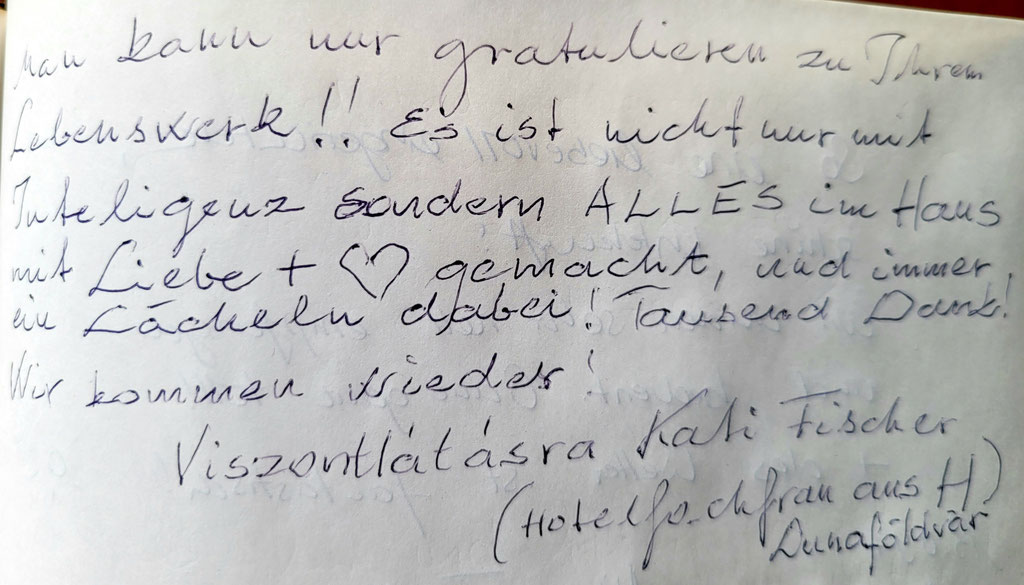 Man kann nur gratulieren zu Ihrem
Lebenswerk!! Es ist nicht nur mit
Inteligenz sondern ALLES im Haus
mit Liebe + ♡ gemacht, und immer
ein Lächeln dabei! Tausend Dank!
Wir kommen wieder!
Viszontlátásra Kati Fischer
(Hotelfachfrau aus H)
Dunaföldvár